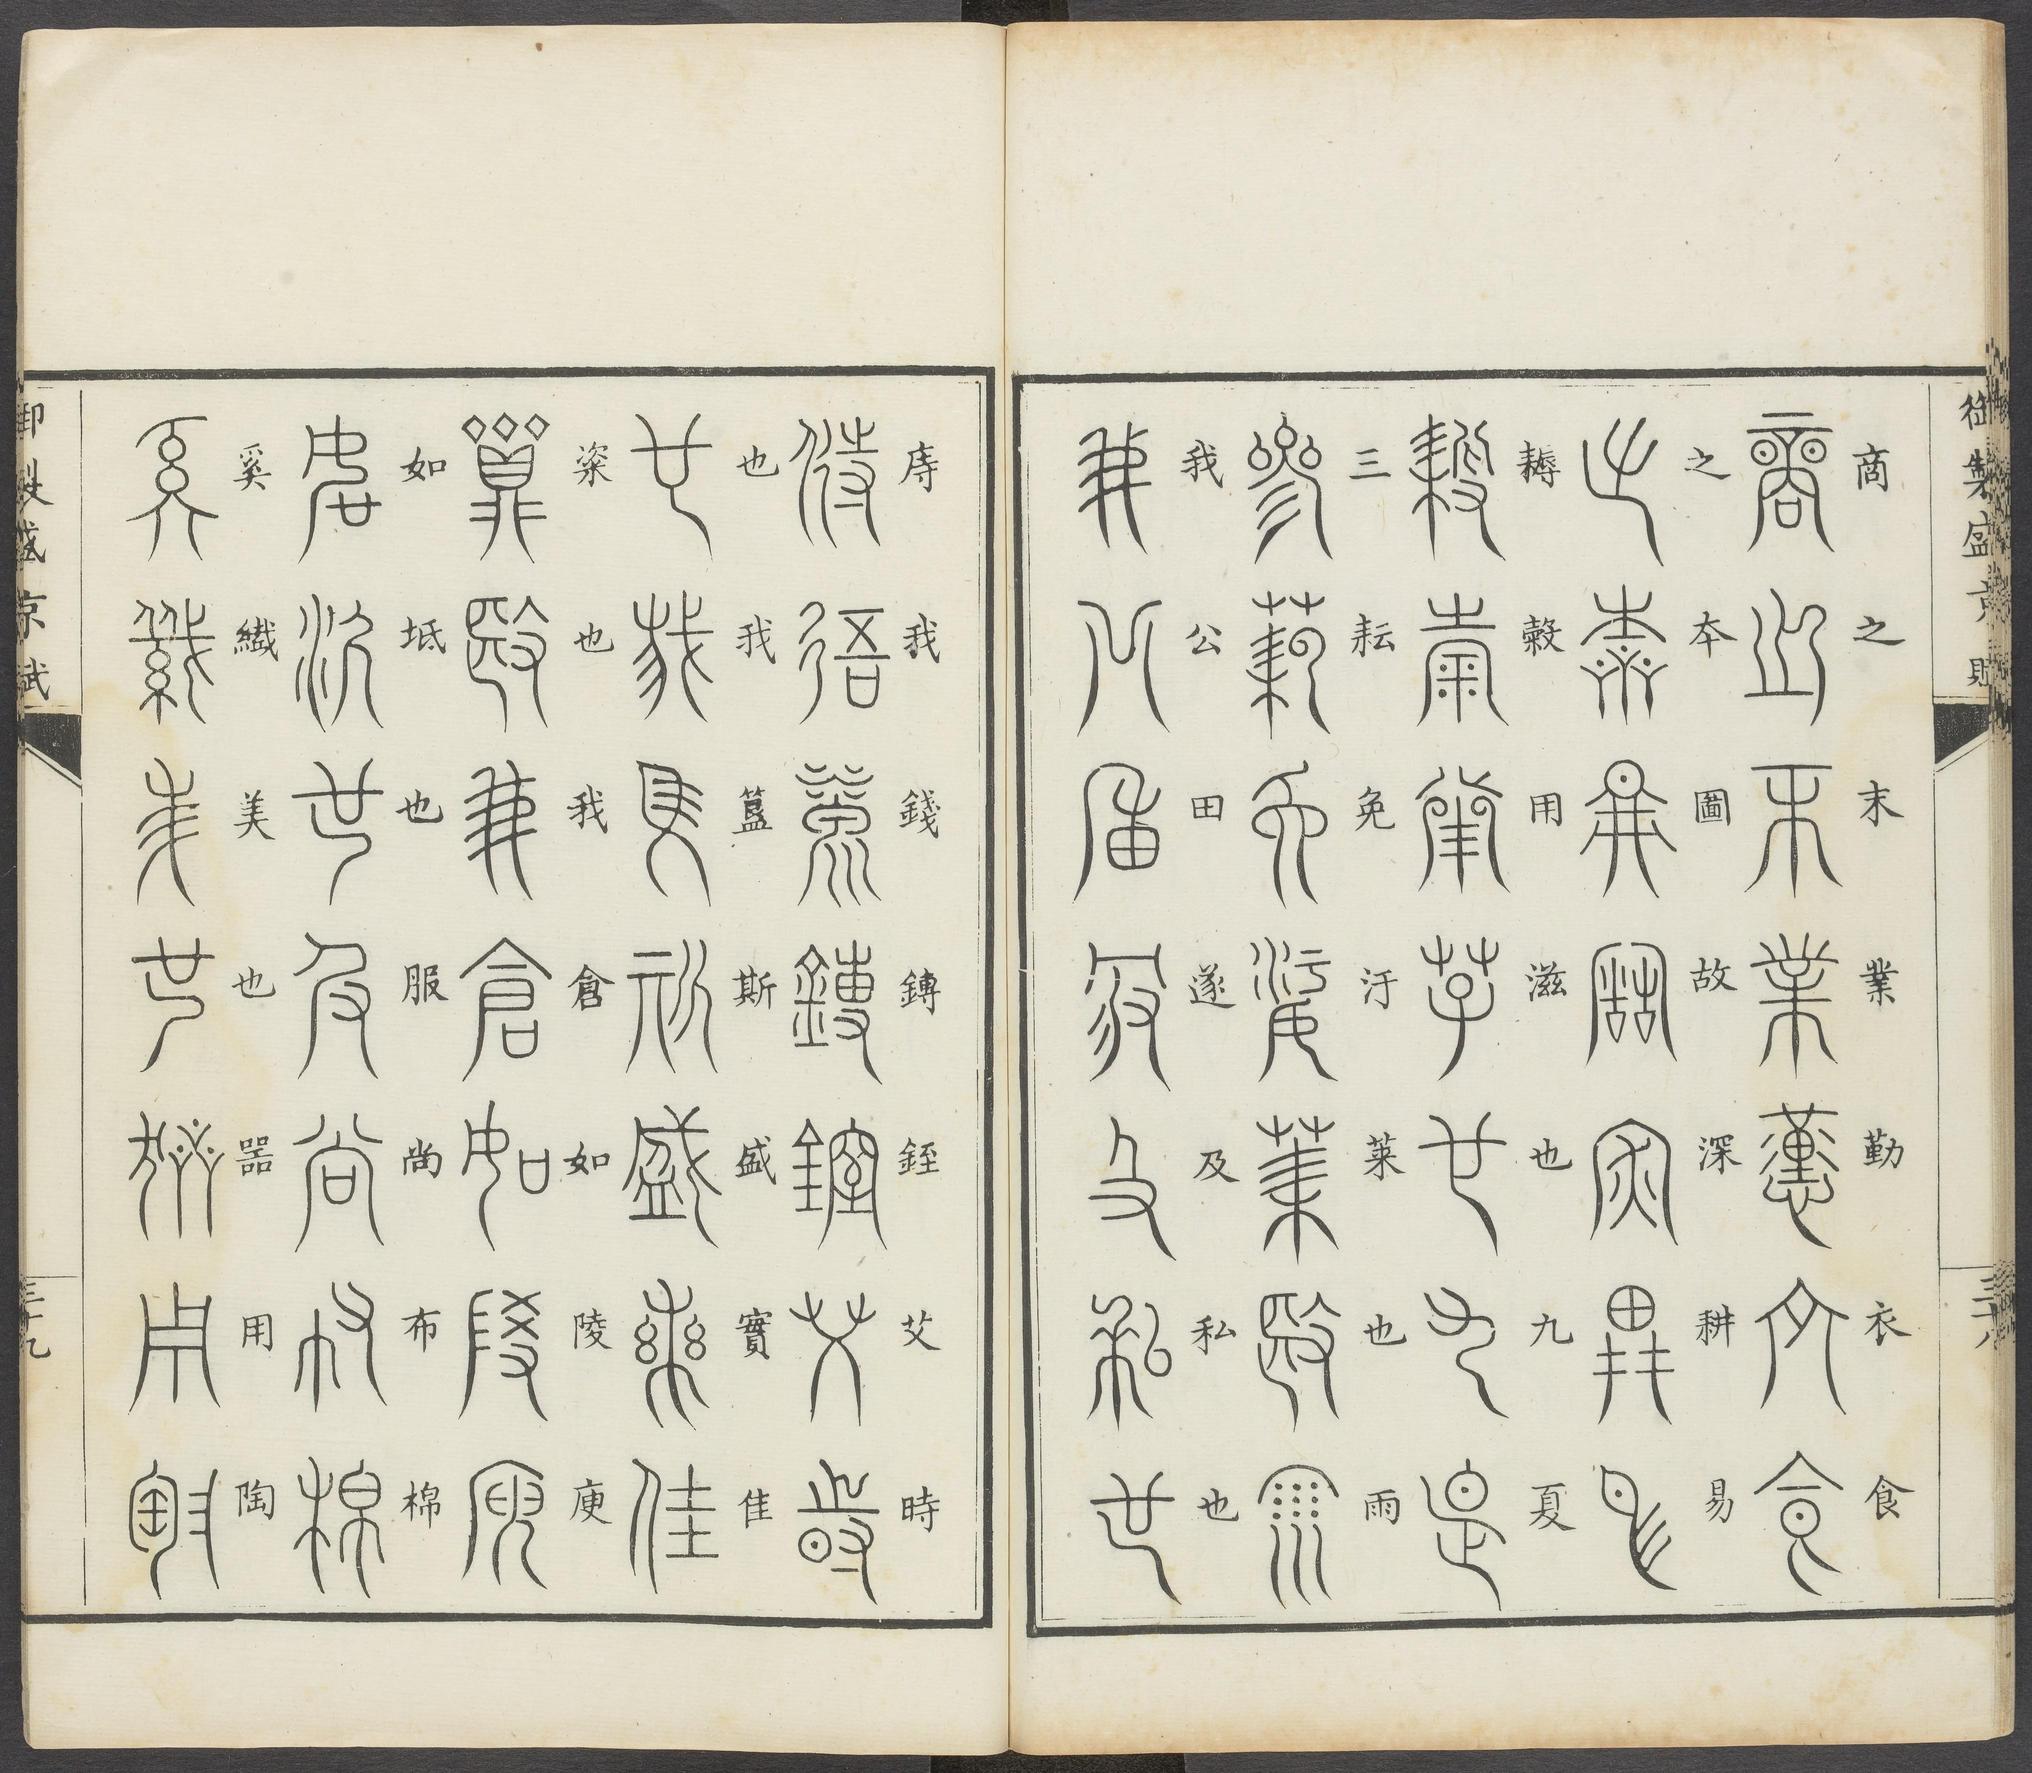 御製盛京賦
三十八
商之末業勤衣食
之本圖故深耕易
耨穀用滋也九夏
三耘免汙萊也雨
我公田遂及私也
庤我錢鎛銍艾時
也我簋斯盛實隹
粢也我倉如陵庾
如坻也服尚布棉
奚纖美也噐用陶
御製盛京賦
三十九